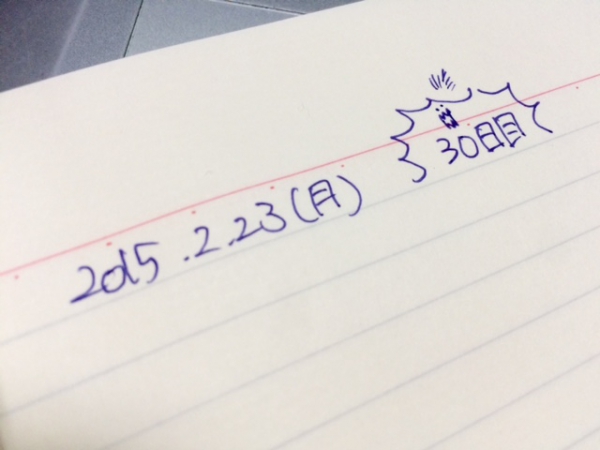 2015.2.23(月) 30日目